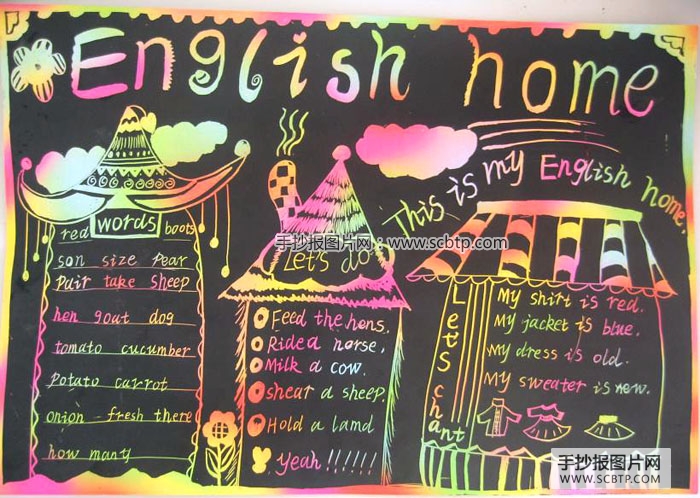 English home
This is my English home.
words
red boots
son size pear
pair take sheep
hen goat dog
tomato cucumber
potato carrot
onion fresh there
how many
Let's do
Feed the hens.
Ride a horse.
Milk a cow.
shear a sheep.
Hold a lamd
Yeah!!!!!!
Let's chant
My shirt is red.
My jacket is blue.
My dress is old.
My sweater is new.
手抄报图片网:www.scbtp.com
手抄报图片网
WWW.SCBTP.COM